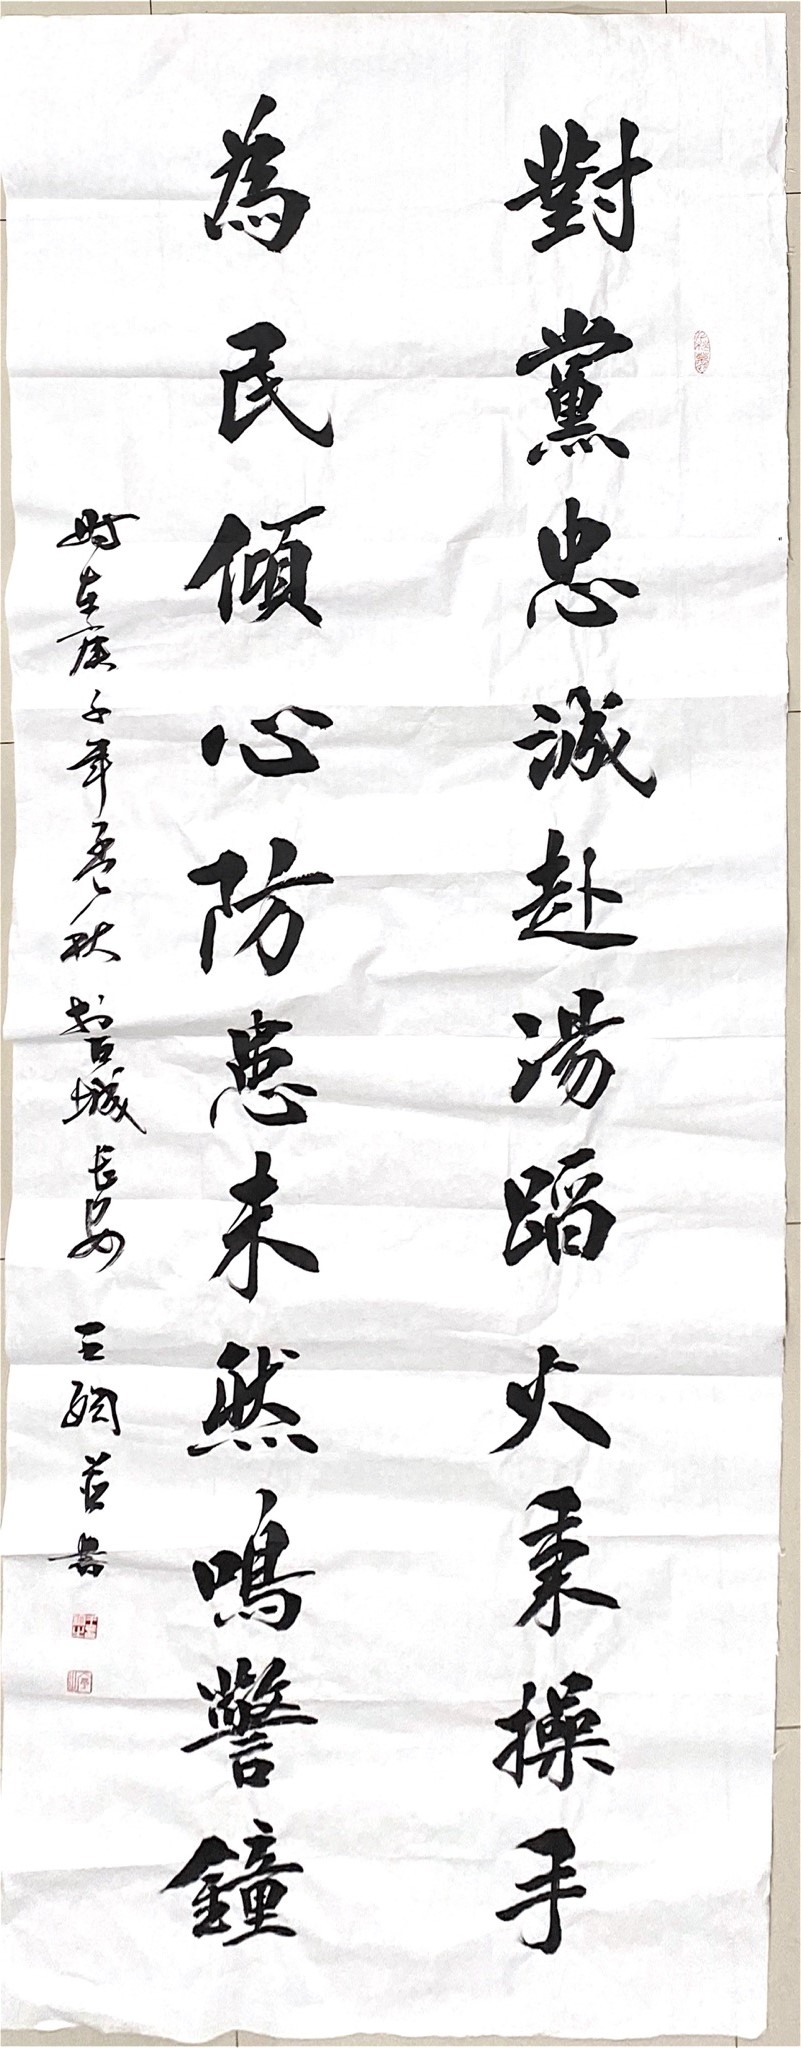 對黨忠誠赴湯蹈火秉操手
為民傾心防患未然鳴警鐘
時在庚子年孟秋於古城長安 王 書